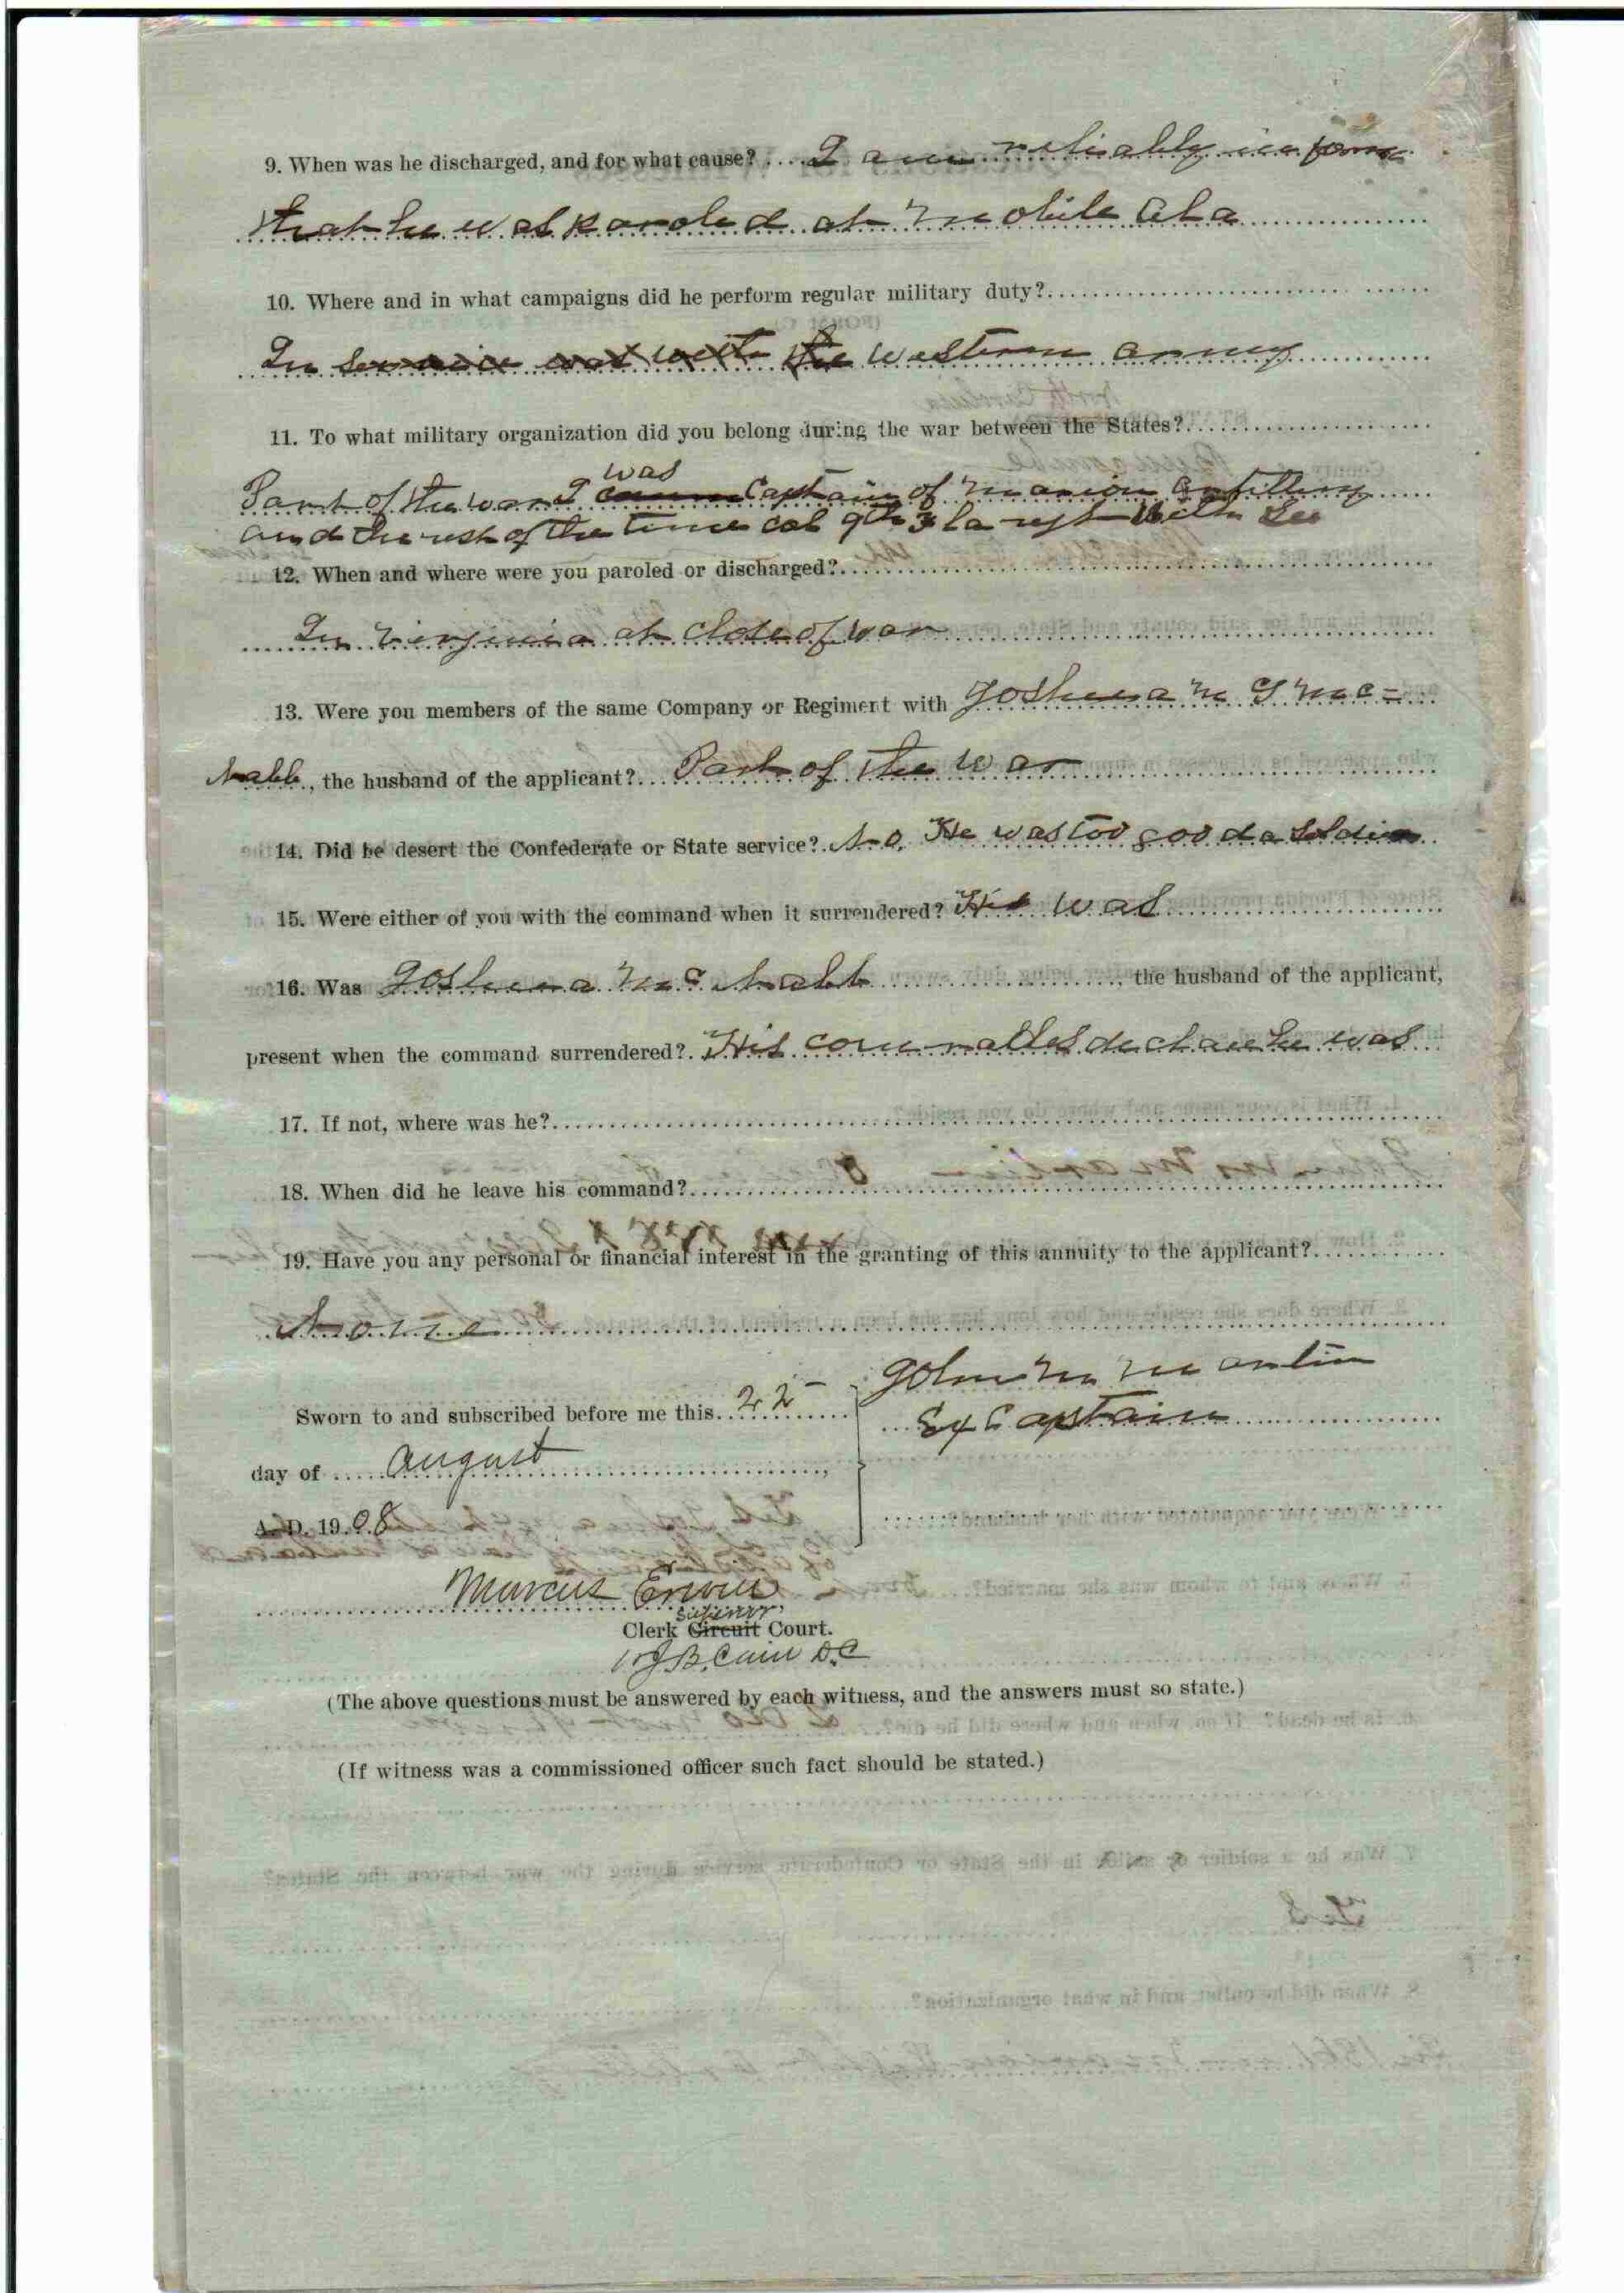 9. When was he discharged, and for what cause? I am reliably inform
that he was paroled at Mobile Ala
10. Where and in what campaigns did he perform regular military duty?
In service was with the western army
11. To what military organization did you belong during the war between the States?
was
Part of the war I Captain of Marion Artillery
and the rest of the time col 9th Fla regt with Lee
12. When and where were you paroled or discharged?
In Virginia at close of war
13. Were you members of the same Company or Regiment with Joshua Mc=
Nabb, the husband of the applicant? Part of the war
14. Did he desert the Confederate or State service? No. He was too good a soldier
15. Were either of you with the command when it surrendered? He was
16. Was Joshua McNabb, the husband of the applicant,
present when the command surrendered? His comrades declare he was
17. If not, where was he?
18. When did he leave his command?
19. Have you any personal or financial interest in the granting of this annuity to the applicant?
None
John M Martin
Sworn to and subscribed before me this 22
Ex Captain
day of August,
A. D. 1908
Marcus Erwin
Superior
Clerk Circuit Court.
J. B. Cain D.C
(The above questions must be answered by each witness, and the answers must so state.)
(If witness was a commissioned officer such fact should be stated.)